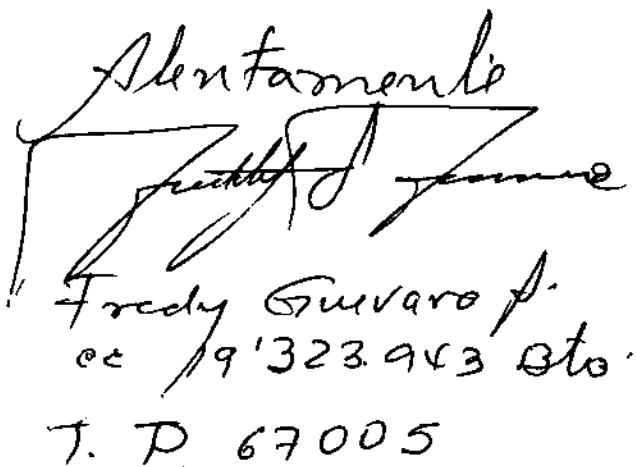 Atentamente
Fredy Guevara P.
cc 19'323.943 Bta.
T. P 67005